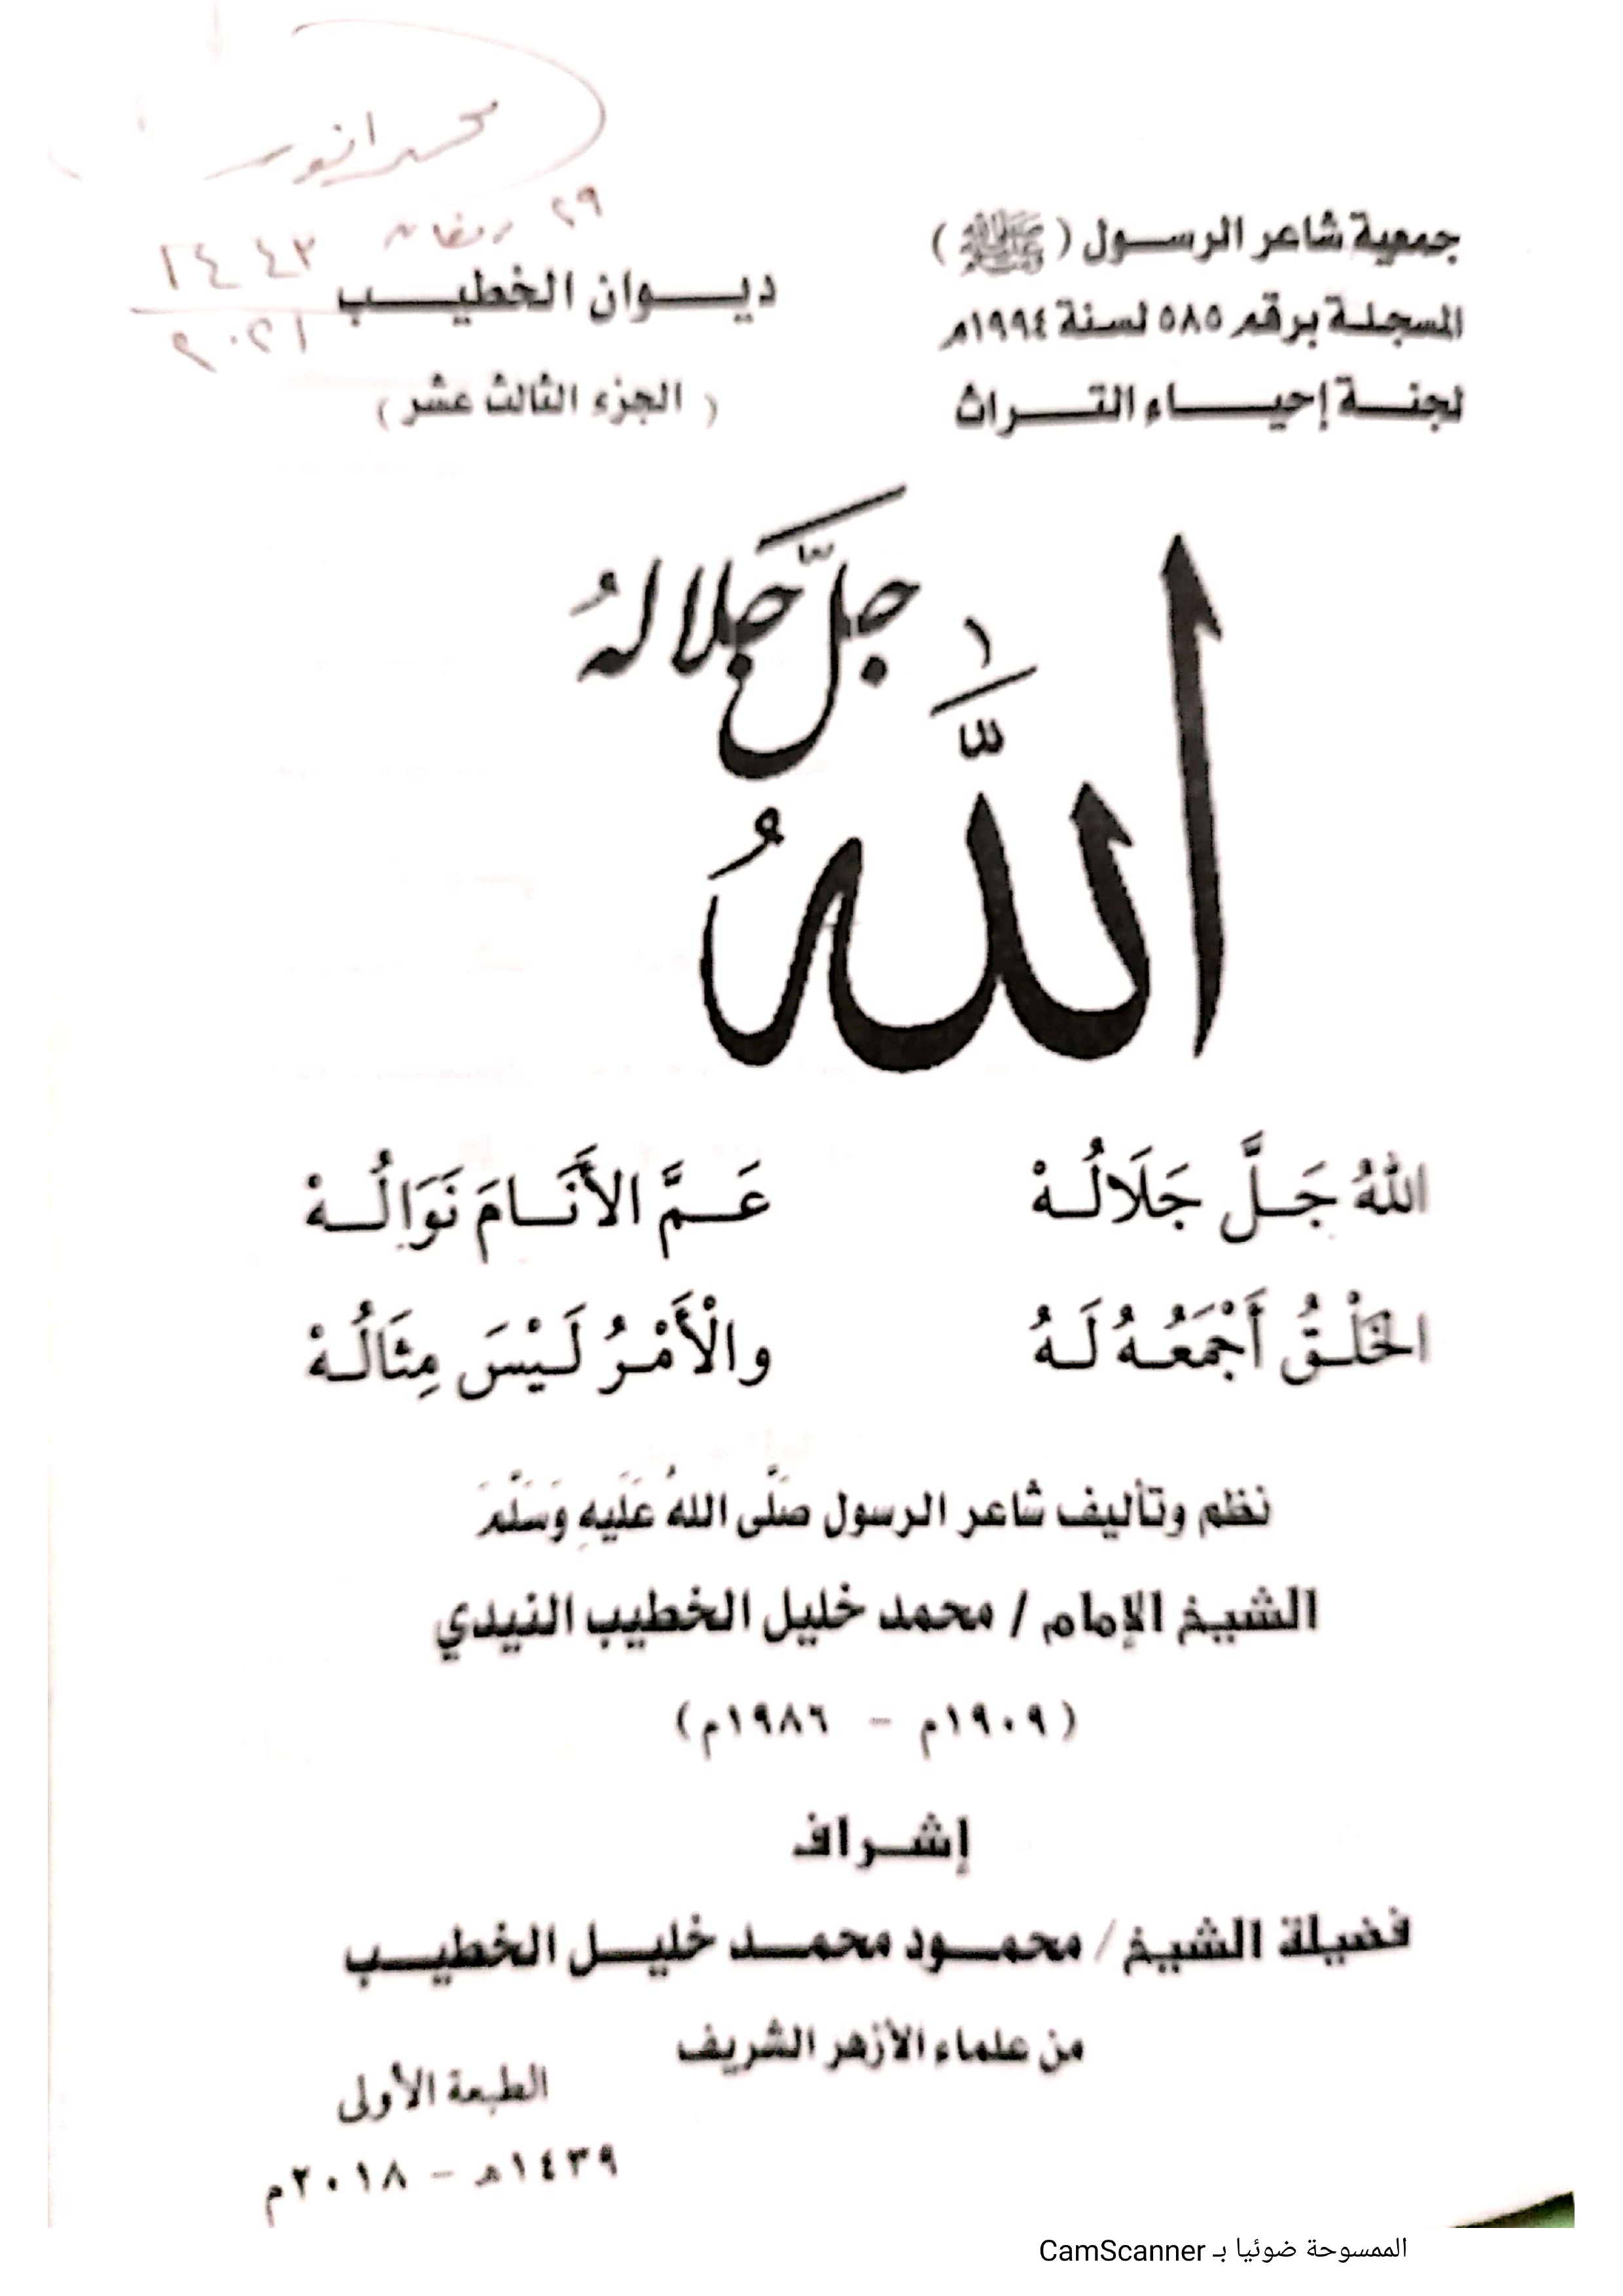 محمد انور
٢٩ رمضان
١٤٤٢
٢٠٢١
جمعية شاعر الرسول (ﷺ)
المسجلة برقم ٥٨٥ لسنة ١٩٩٤م
لجنة إحياء التراث
ديوان الخطيب
(الجزء الثالث عشر)
جلّ جلالهُ
اللّٰهُ
اللهُ جَلَّ جَلَالُهْ عَمَّ الأَنَامَ نَوَالُهْ
الخَلْقُ أَجْمَعُهُ لَهُ والْأَمْرُ لَيْسَ مِثَالُهْ
نظم وتأليف شاعر الرسول صَلَّى اللهُ عَلَيهِ وَسَلَّمَ
الشيخ الإمام / محمد خليل الخطيب النيدي
(١٩٠٩م - ١٩٨٦م)
إشراف
فضيلة الشيخ / محمود محمد خليل الخطيب
من علماء الأزهر الشريف
الطبعة الأولى
١٤٣٩هـ - ٢٠١٨م
الممسوحة ضوئيا بـ CamScanner